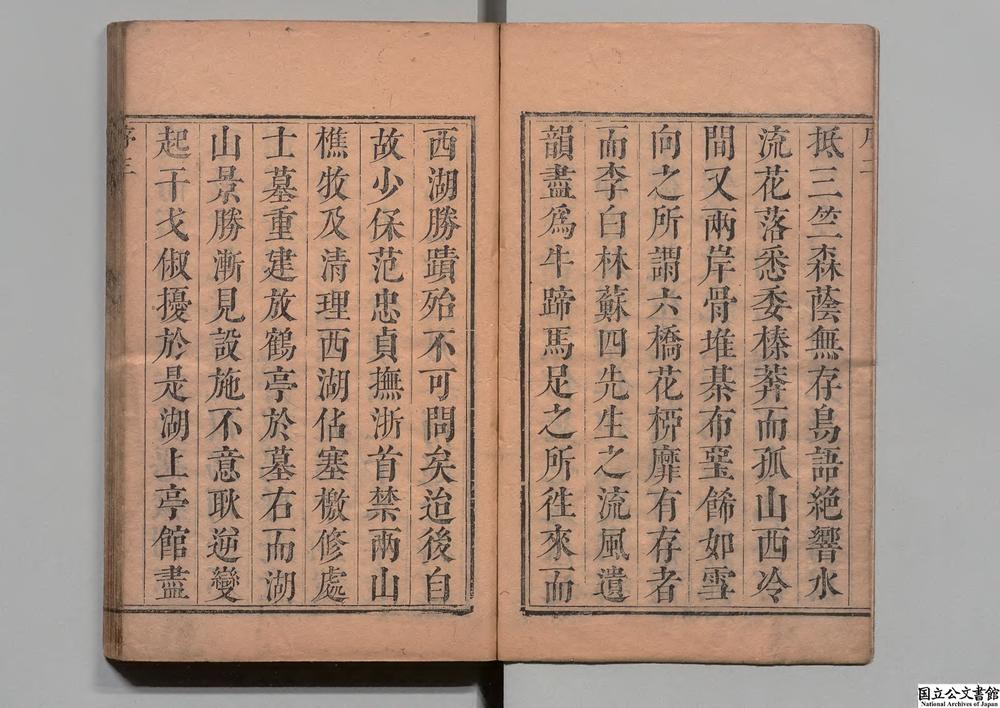 序二
抵三竺森蔭無存鳥語絶響水
流花落悉委榛莽而孤山西冷
間又兩岸骨堆棊布壐餙如雪
向之所謂六橋花柳靡有存者
而李白林蘇四先生之流風遺
韻盡爲牛蹄馬足之所徃來而
西湖勝蹟殆不可問矣迨後自
故少保范忠貞撫浙首禁兩山
樵牧及清理西湖佔塞檄修處
士墓重建放鶴亭於墓右而湖
山景勝漸見設施不意耿逆變
起干戈俶擾於是湖上亭館盡
序三
国立公文書館
National Archives of Japan